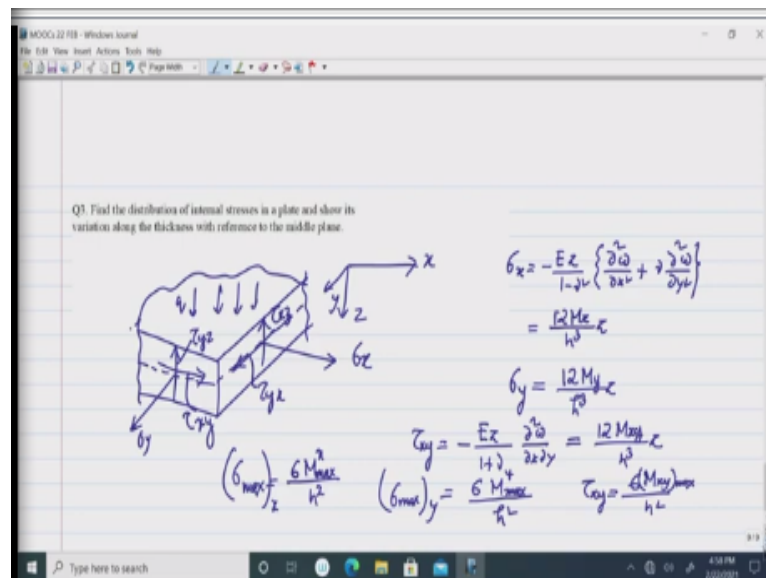 MOOCs 22 FEB - Windows Journal
File Edit View Insert Actions Tools Help
Page Width
Q3. Find the distribution of internal stresses in a plate and show its
variation along the thickness with reference to the middle plane.
x
y
z
q
τyz
τxz
σx
τyx
τxy
σy
σx = -Ez/1-ν² {∂²ω/∂x² + ν ∂²ω/∂y²}
= 12Mx/h³ z
σy = 12My/h³ z
τxy = -Ez/1+ν ∂²ω/∂x∂y = 12Mxy/h³ z
(σmax)x = 6Mˣmax/h²
(σmax)y = 6Mʸmax/h²
τxy = 6(Mxy)max/h²
9/9
Type here to search
4:58 PM
2/22/2021